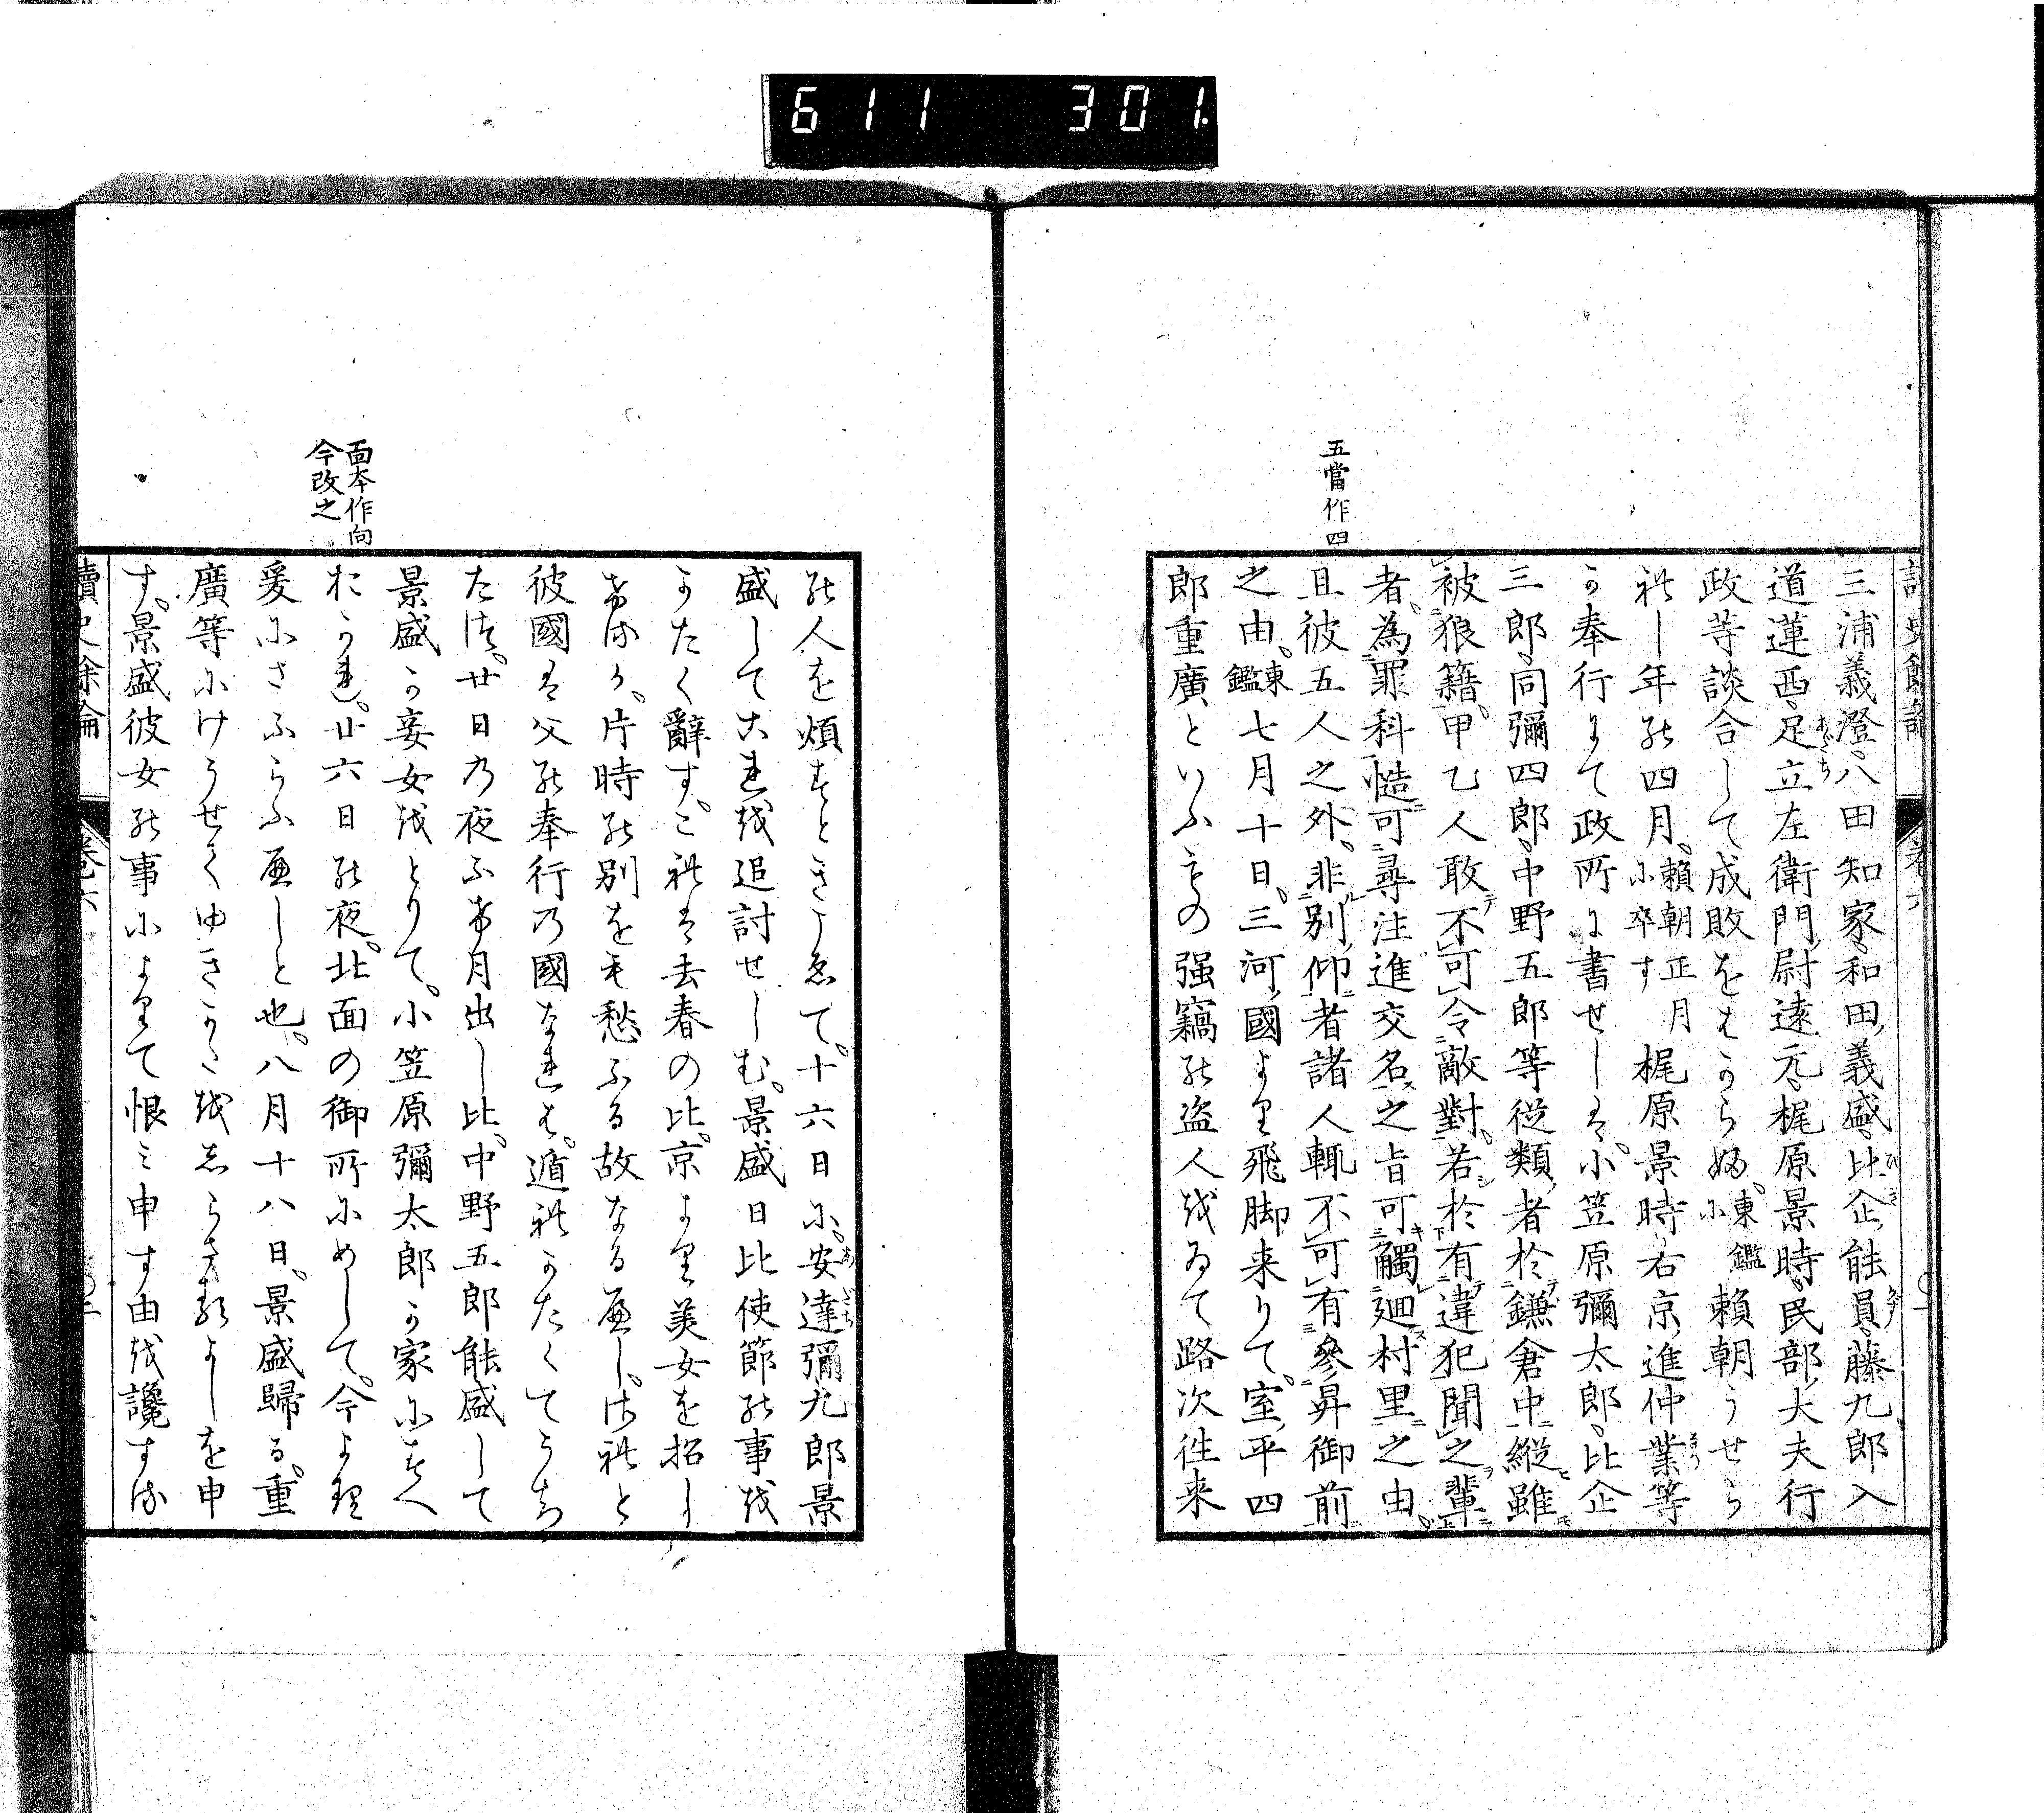 611 301
讀史餘論 卷六
三浦義澄、八田知家、和田義盛、比企能員、藤九郎入
道蓮西、足立左衛門尉遠元、梶原景時、民部大夫行
政等談合して成敗をはからふ。東鑑に賴朝うせら
れし年の四月。賴朝正月に卒す梶原景時右京進仲業等
か奉行にて政所に書せしは。小笠原彌太郎、比企
三郎、同彌四郎、中野五郎等從類者於鎌倉中縱雖
被狼籍。甲乙人敢不可令敵對。若於有違犯聞之輩
者。為罪科慥可尋注進交名之旨可觸廻村里之由。
五當作四
且彼五人之外。非別仰者諸人輙不可有參昇御前
之由。東鑑七月十日。三河國より飛脚来りて。室平四
郎重廣といふもの强竊の盗人をゐて路次往来
の人を煩すときこゑて。十六日に。安達彌九郎景
盛してこれを追討せしむ。景盛日比使節の事を
かたく辭す。これは去春の比。京より美女を招し
けるか。片時の別をも愁ふる故なるへし。されと
彼國は父の奉行の國なれは。遁れかたくてうち
たつ。廿日の夜ふけ月出し比。中野五郎能盛して
景盛か妾女をとりて。小笠原彌太郎か家にすへ
おかれ。廿六日の夜。北面の御所にめして。今より
面本作向
今改之
爰にさふらふへしと也。八月十八日。景盛歸る。重
廣等にけうせてゆきかたをしらさるよしを申
す。景盛彼女の事によりて恨み申す由を讒する
讀史餘論 卷六